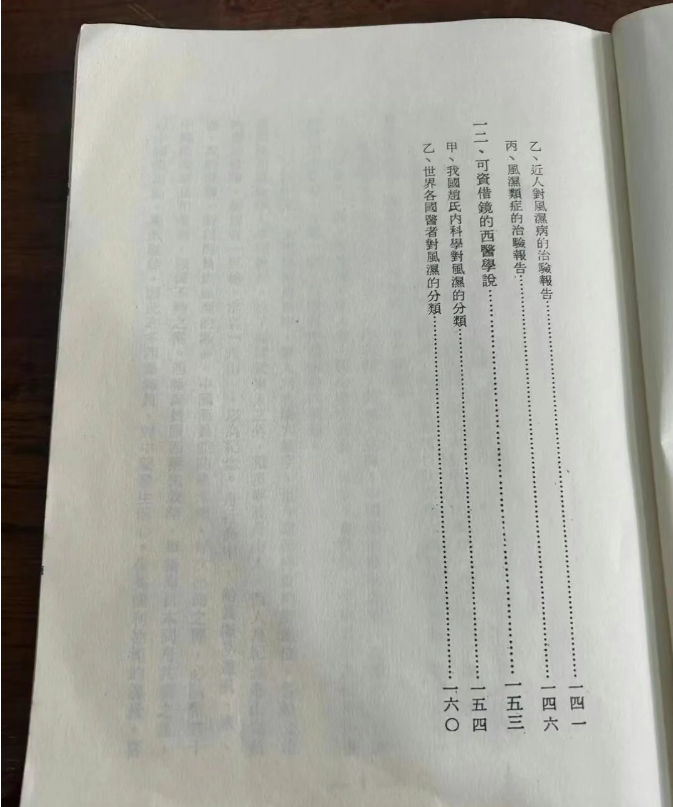 乙、近人對風濕病的治驗報告……一四一
丙、風濕類症的治驗報告……一四六
一二、可資借鏡的西醫學說……一五三
甲、我國趙氏內科學對風濕的分類……一五四
乙、世界各國醫者對風濕的分類……一六〇